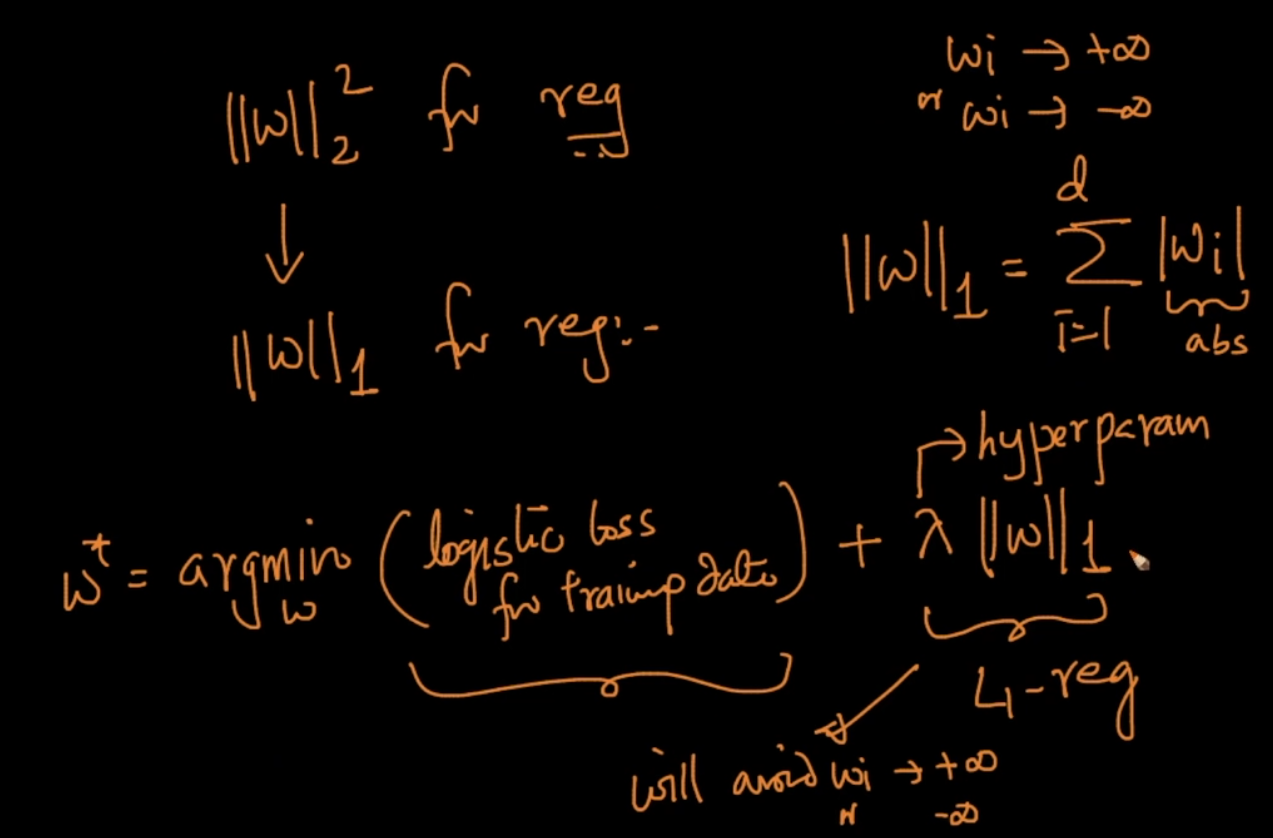 ||w||₂² for reg
wi → +∞
or wi → -∞
↓
||w||₁ for reg:-
||w||₁ = d Σ i=1 |wi|
abs
→ hyperparam
w* = argmin w (logistic loss for training data) + λ ||w||₁
L1-reg
will avoid wi → +∞
or -∞